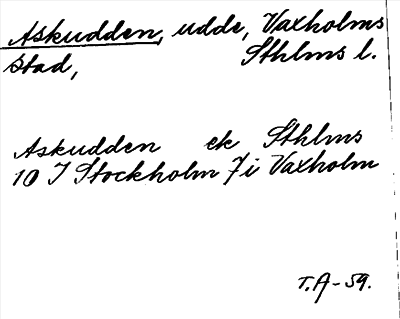 Askudden, udde, Vaxholms
stad, Sthlms l.
Askudden ek Sthlms
10 I Stockholm 7 i Vaxholm
T.A-59.